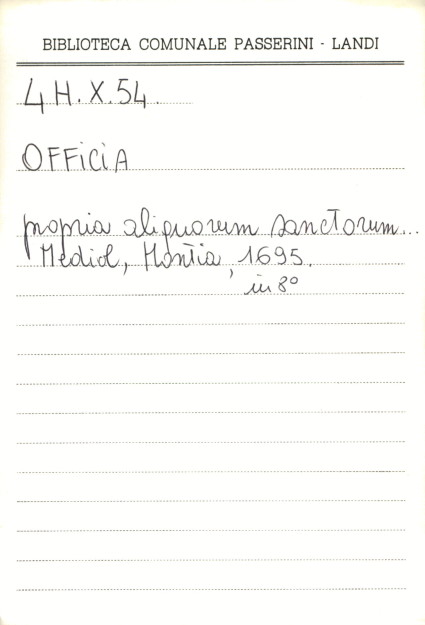 BIBLIOTECA COMUNALE PASSERINI - LANDI
4 H. X. 54
OFFICIA
propria aliquorum sanctorum...
Mediol, Montia, 1695.
in 8°